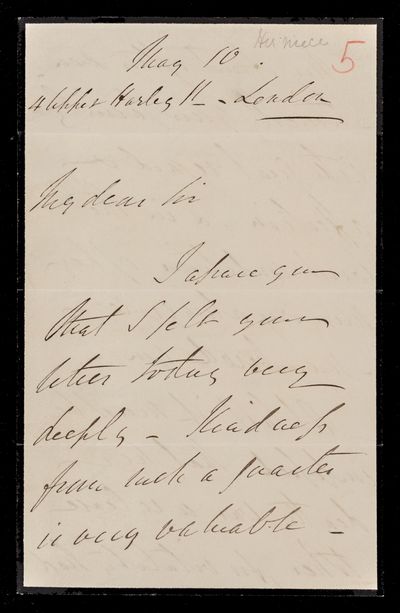 Her niece
5
May 10.
4 Upper Harley St - London
My dear Sir
I assure you
that I felt your
letter today very
deeply - Kindness
from such a quarter
is very valuable -